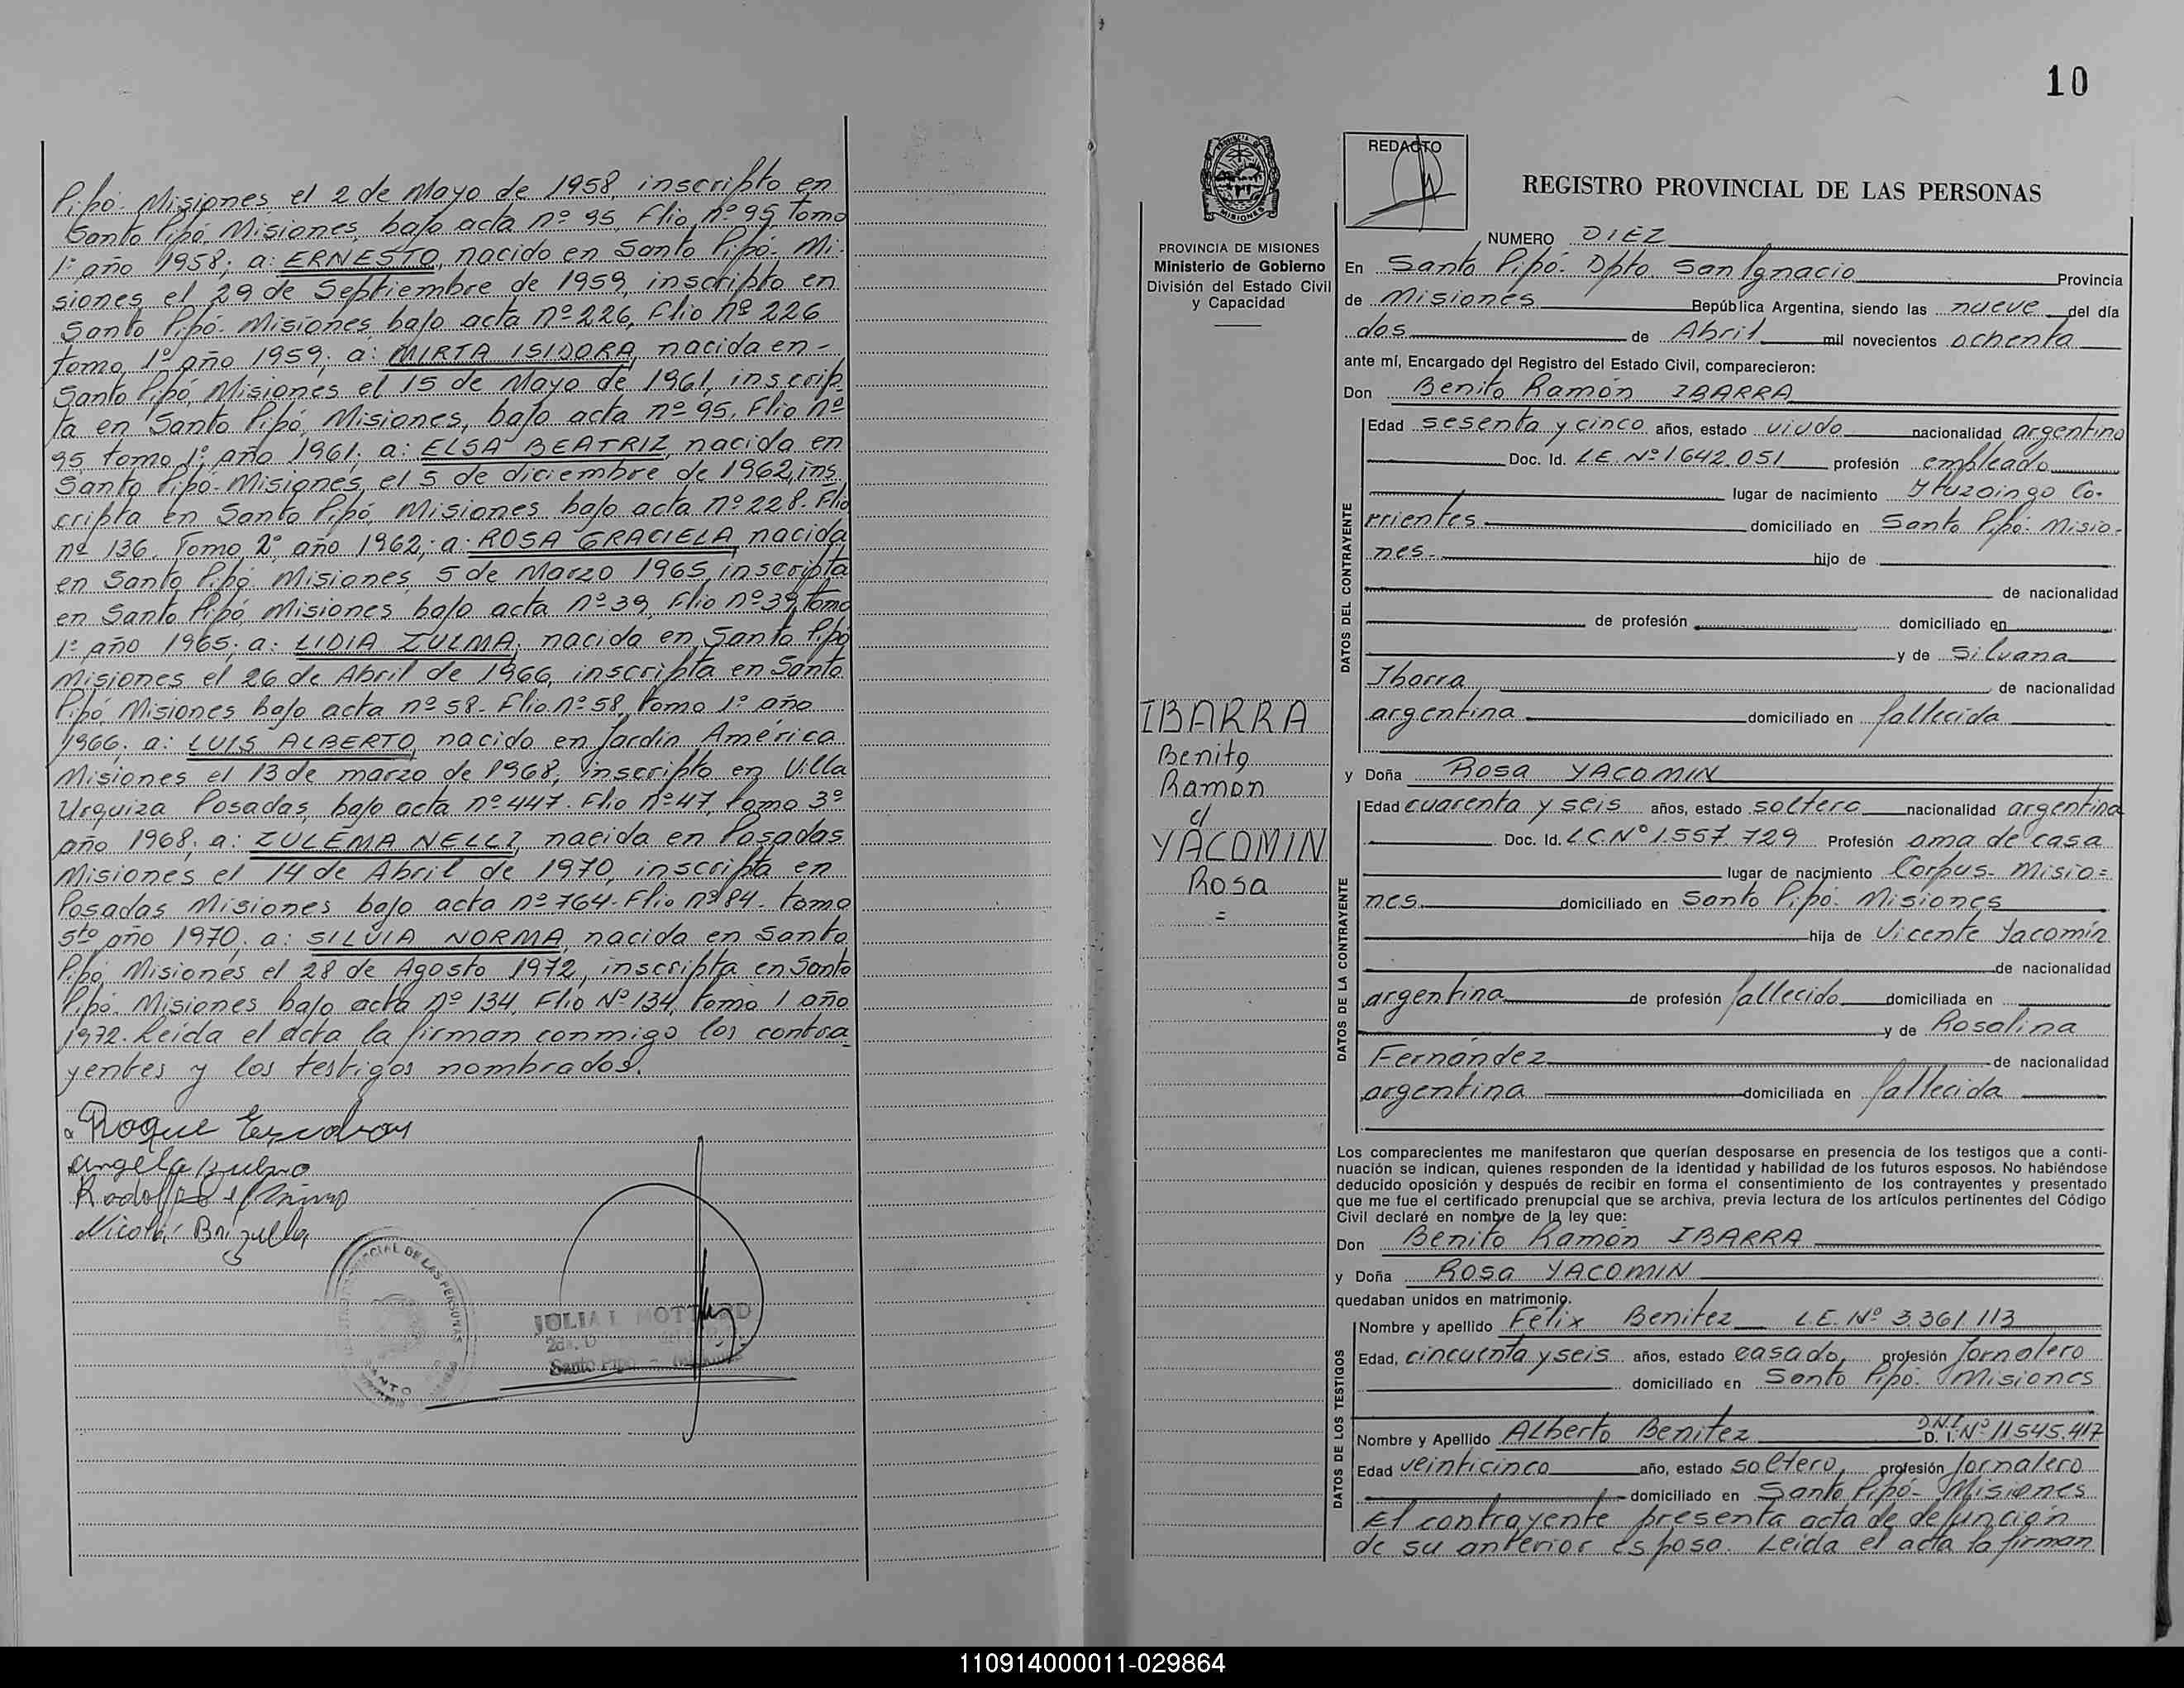 Pipó. Misiones el 2 de Mayo de 1958, inscripto en
Santo Pipó, Misiones, bajo acta nº 95, Flio nº 95, Tomo
1º año 1958; a: ERNESTO, nacido en Santo Pipó. Mi-
siones el 29 de Septiembre de 1959, inscripto en
Santo Pipó. Misiones, bajo acta nº 226, Flio nº 226
tomo 1º año 1959; a: MIRTA ISIDORA, nacida en-
Santo Pipó, Misiones el 15 de Mayo de 1961, inscrip
ta en Santo Pipó, Misiones, bajo acta nº 95, Flio nº
95 tomo 1º, año 1961; a: ELSA BEATRIZ, nacida en
Santo Pipó-Misiones, el 5 de diciembre de 1962, ins
cripta en Santo Pipó, Misiones bajo acta nº 228. Flio
nº 136. Tomo 2º año 1962; a: ROSA GRACIELA, nacida
en Santo Pipó Misiones, 5 de Marzo 1965, inscripta
en Santo Pipó, Misiones bajo acta nº 39, Flio nº 39, Tomo
1º año 1965; a: LIDIA ZULMA, nacida en Santo Pipó
Misiones el 26 de Abril de 1966, inscripta en Santo
Pipó Misiones bajo acta nº 58- Flio nº 58, Tomo 1º año
1966; a: LUIS ALBERTO, nacido en Jardín América
Misiones el 13 de marzo de 1968, inscripto en Villa
Urquiza Posadas, bajo acta nº 447. Flio nº 47, tomo 3º
año 1968; a: ZULEMA NELLI, nacida en Posadas
Misiones el 14 de Abril de 1970, inscripta en
Posadas Misiones bajo acta nº 764- Flio nº 84- tomo
5to año 1970; a: SILVIA NORMA, nacida en Santo
Pipó, Misiones el 28 de Agosto 1972, inscripta en Santo
Pipó. Misiones bajo acta nº 134, Flio Nº 134, tomo 1 año
1972. Leída el acta la firman conmigo los contra
yentes y los testigos nombrados.
Roque Escobar
Angela
Nicolás Brizuela
JULIA I. MOTTARD
Santo Pipó - Misiones
10
REDACTO
REGISTRO PROVINCIAL DE LAS PERSONAS
PROVINCIA DE MISIONES
Ministerio de Gobierno
División del Estado Civil
y Capacidad
IBARRA
Benito
Ramon
c/
YACOMIN
Rosa
=
NUMERO DIEZ
En Santo Pipó. Dpto. San Ignacio Provincia
de Misiones República Argentina, siendo las nueve del día
dos de Abril mil novecientos ochenta
ante mí, Encargado del Registro del Estado Civil, comparecieron:
Don Benito Ramón IBARRA
DATOS DEL CONTRAYENTE
Edad sesenta y cinco años, estado viudo nacionalidad argentino
Doc. Id. L.E. Nº 1.642.051 profesión empleado
lugar de nacimiento Ytuzaingo Co-
rrientes domiciliado en Santo Pipó. Misio-
nes- hijo de
de nacionalidad
de profesión domiciliado en
y de Silvana
Ibarra de nacionalidad
argentina domiciliado en fallecida
y Doña Rosa YACOMIN
DATOS DE LA CONTRAYENTE
Edad cuarenta y seis años, estado soltera nacionalidad argentina
Doc. Id. L.C. Nº 1.557.729 Profesión ama de casa
lugar de nacimiento Corpus- Misio=
nes. domiciliado en Santo Pipó. Misiones
hija de Vicente Yacomín
de nacionalidad
argentina de profesión fallecido domiciliada en
y de Rosalina
Fernández de nacionalidad
argentina domiciliada en fallecida
Los comparecientes me manifestaron que querían desposarse en presencia de los testigos que a conti-
nuación se indican, quienes responden de la identidad y habilidad de los futuros esposos. No habiéndose
deducido oposición y después de recibir en forma el consentimiento de los contrayentes y presentado
que me fue el certificado prenupcial que se archiva, previa lectura de los artículos pertinentes del Código
Civil declaré en nombre de la ley que:
Don Benito Ramón IBARRA
y Doña Rosa YACOMIN
quedaban unidos en matrimonio.
DATOS DE LOS TESTIGOS
Nombre y apellido Félix Benitez L.E. Nº 3.361.113
Edad, cincuenta y seis años, estado casado profesión Jornalero
domiciliado en Santo Pipó. Misiones
Nombre y Apellido Alberto Benitez D.N.I. D. I. Nº 11.545.417
Edad veinticinco año, estado soltero profesión Jornalero
domiciliado en Santo Pipó- Misiones
El contrayente presenta acta de defunción
de su anterior esposa. Leída el acta la firman
110914000011-029864